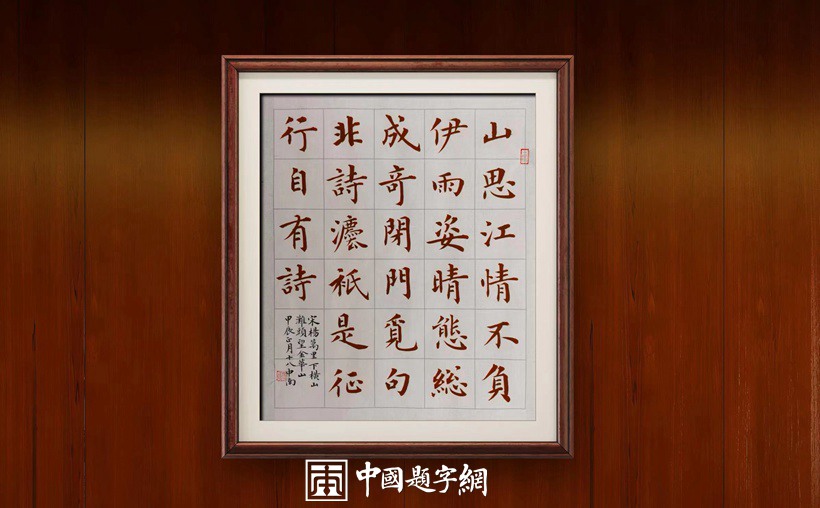 山思江情不負
伊雨姿晴態總
成奇閉門覓句
非詩灋衹是征
行自有詩
宋楊萬里下橫山
灘頭望金華山
甲辰正月十八
中國題字網